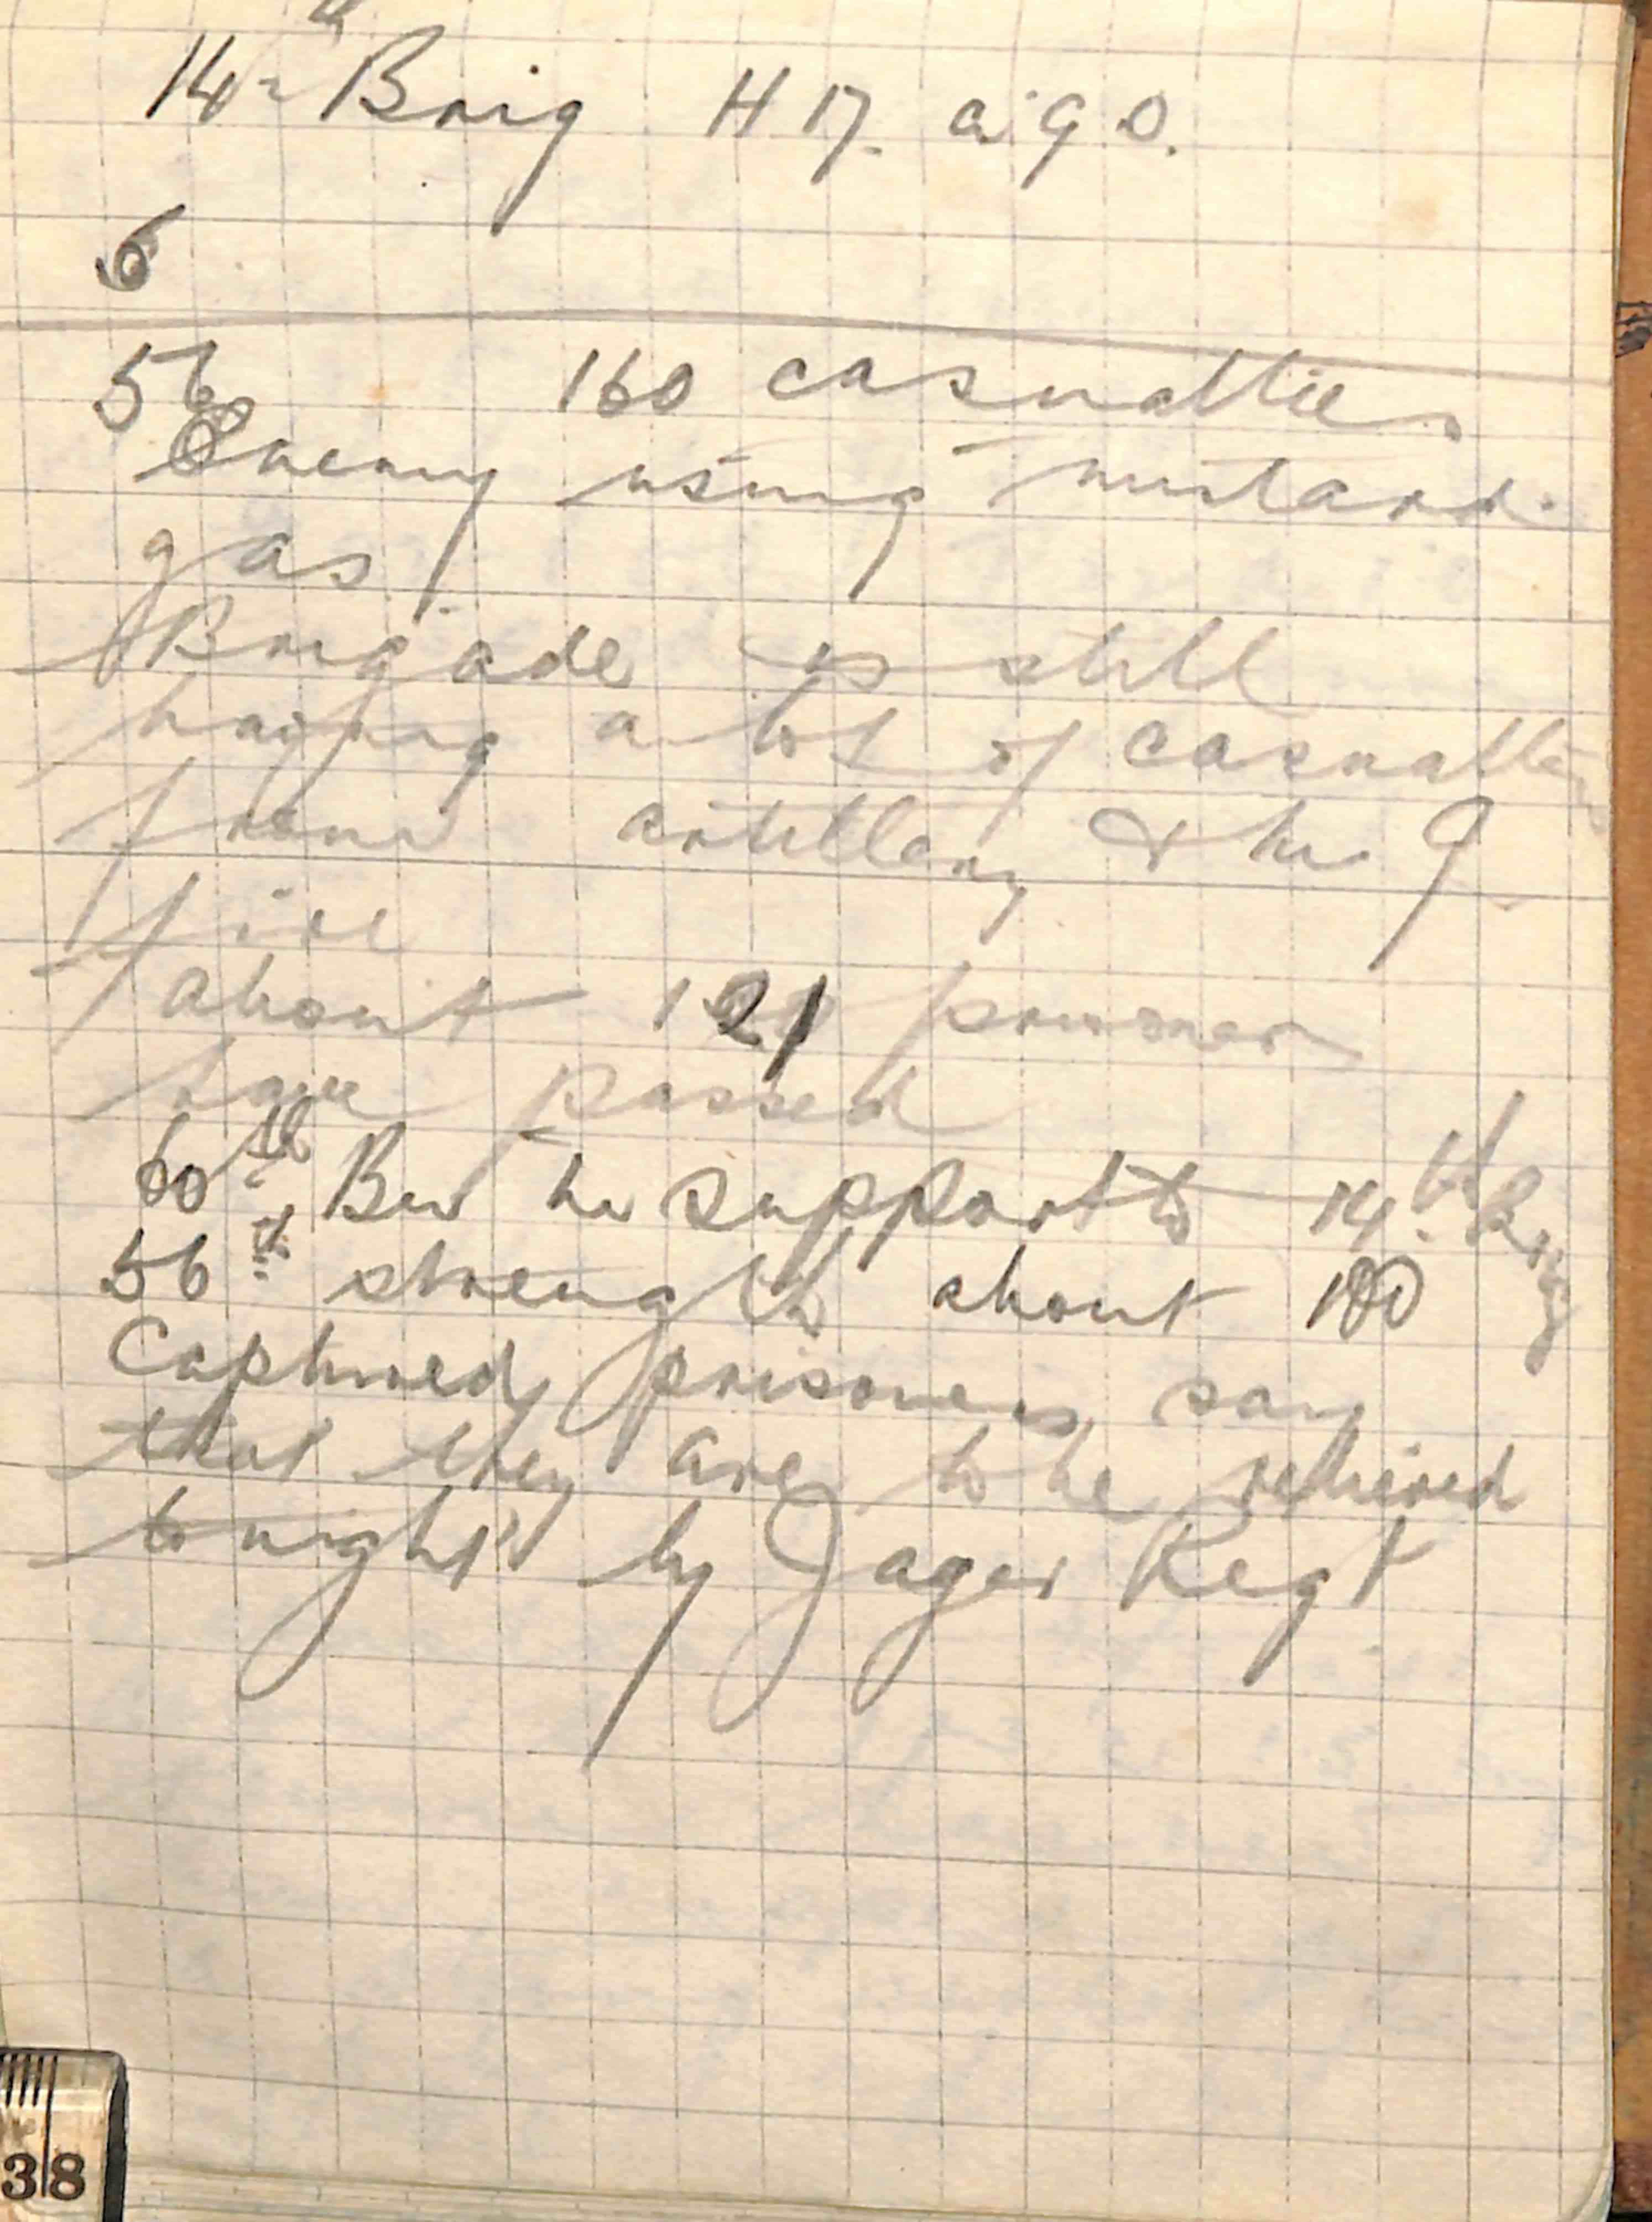 14th Brig H 17. a.9.0.
6
56 160 casualties
Enemy using mustard
gas.
Brigade is still
having a lot of casualties
from artillery & M G
fire
about 121 prisoners
have passed
60th Bn in support to 14th Brig
56th strength about 180
Captured prisoners say
that they are to be relieved
to night by Jager Regt
38